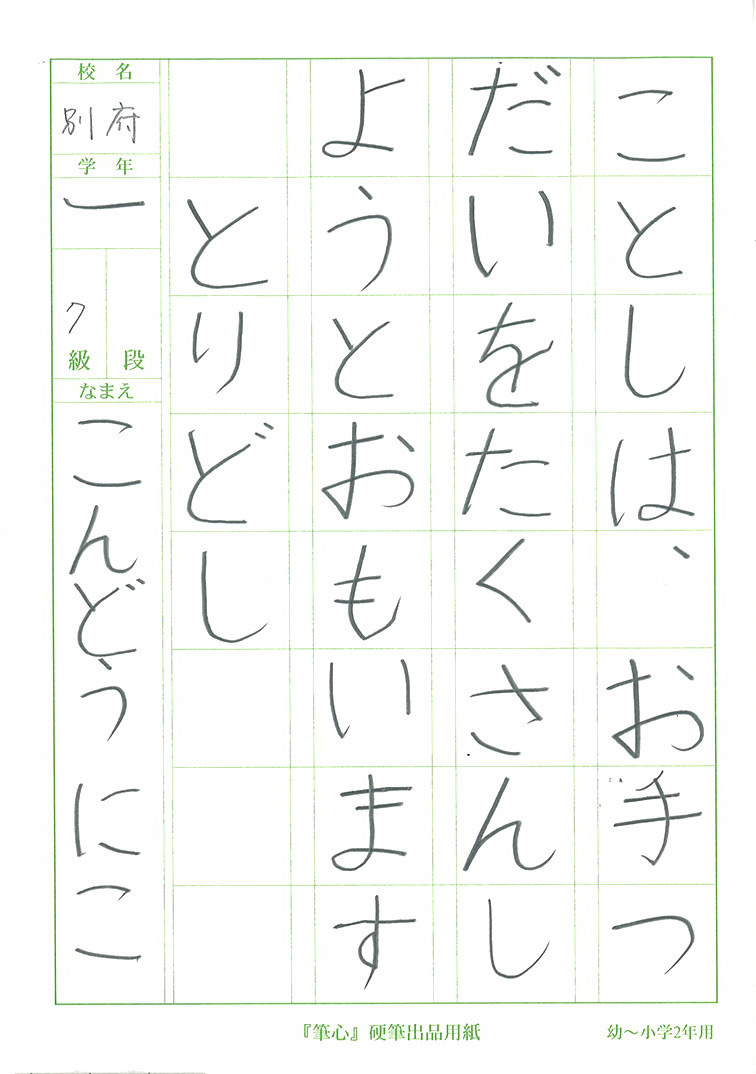 ことしは、お手つ
だいをたくさんし
ようとおもいます
とりどし
校名
別府
学年
一
7
級段
なまえ
こんどうにこ
『筆心』硬筆出品用紙
幼～小学2年用